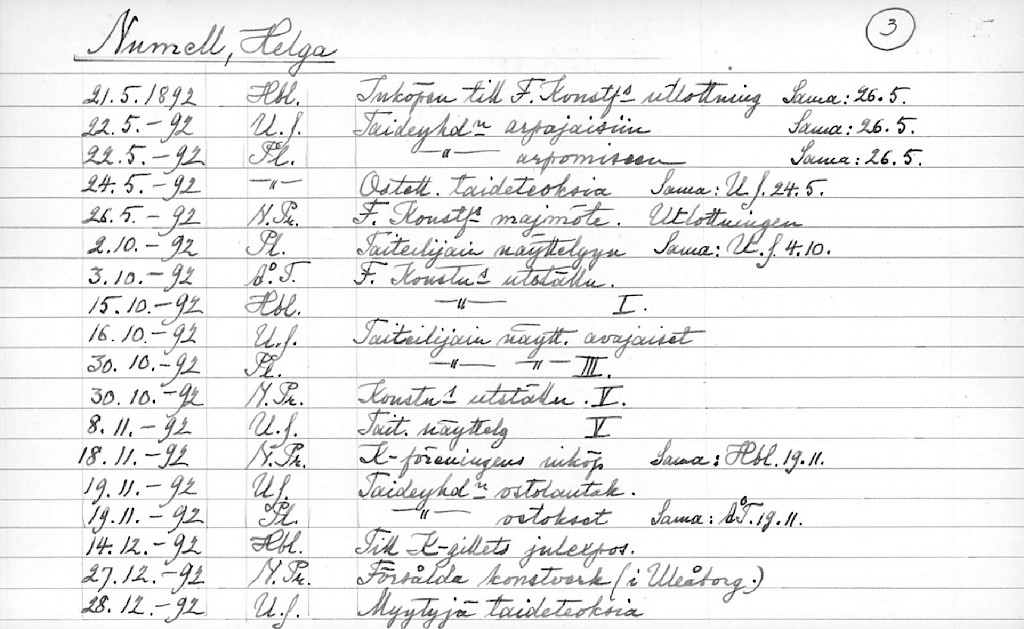 Numell, Helga 3
21.5.1892 Hbl. Inköpen till F. Konstfs utlottning Sama: 26.5.
22.5.-92 U.S. Taideyhdn arpajaisiin Sama: 26.5.
22.5.-92 Pl. -"- arpomiseen Sama: 26.5.
24.5.-92 -"- Ostett. taideteoksia Sama: U.S. 24.5.
26.5.-92 N.Pr. F. Konstfs majmöte. Utlottningen
2.10.-92 Pl. Taiteilijain näyttelyyn Sama: U.S. 4.10.
3.10.-92 Å.T. F. Konstns utställn.
15.10.-92 Hbl. -"- I.
16.10.-92 U.S. Taiteilijain näytt. avajaiset
30.10.-92 Pl. -"- -"- III.
30.10.-92 N.Pr. Konstns utställn. V.
8.11.-92 U.S. Tait. näyttelg V
18.11.-92 N.Pr. K-föreningens inköp Sama: Hbl. 19.11.
19.11.-92 U.S. Taideyhdn ostolautak.
19.11.-92 Pl. -"- ostokset Sama: Å.T. 19.11.
14.12.-92 Hbl. Till K-gillets julexpos.
27.12.-92 N.Pr. Försålda konstverk (i Uleåborg.)
28.12.-92 U.S. Myytyjä taideteoksia